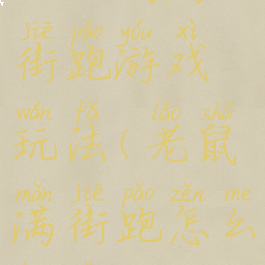 jiē pǎo yóu xì
街跑游戏
wán fǎ lǎo shǔ
玩法(老鼠
mǎn jiē pǎo zěn me
满街跑怎么